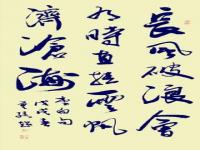 長風破浪會
有時直挂雲帆
濟滄海
李白句
戊戌